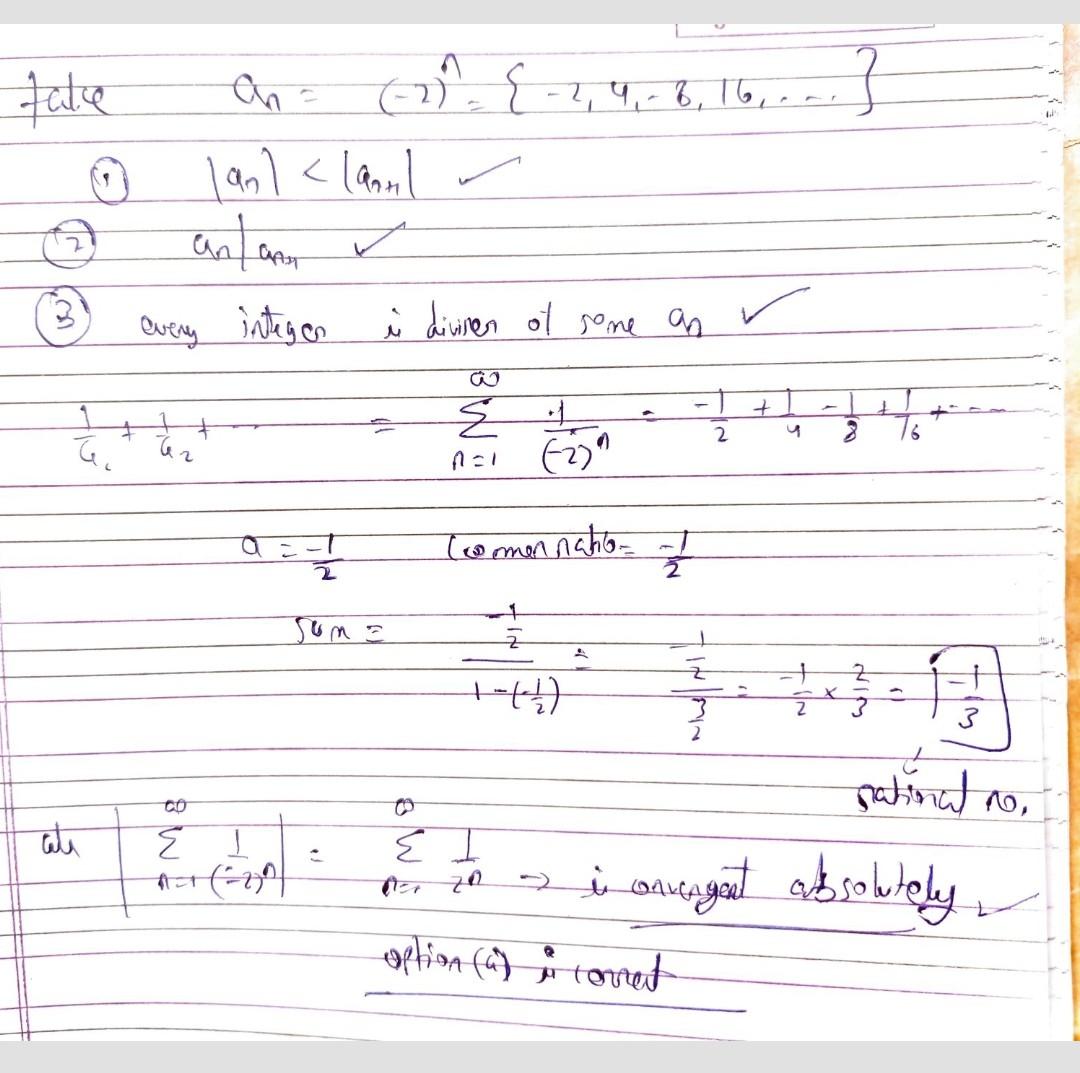 take aₙ = (-2)ⁿ = { -2, 4, -8, 16, .... }
① |aₙ| < |aₙ₊₁| ✓
② aₙ | aₙ₊₁ ✓
③ every integer is divisor of some aₙ ✓
1/a₁ + 1/a₂ + ... = ∑_{n=1}^{∞} 1/(-2)ⁿ = -1/2 + 1/4 - 1/8 + 1/16 + ....
a = -1/2 common ratio = -1/2
sum = (-1/2)/(1-(-1/2)) = (-1/2)/(3/2) = -1/2 × 2/3 = -1/3
rational no.
|∑_{n=1}^{∞} 1/(-2)ⁿ| = ∑_{n=1}^{∞} 1/2ⁿ → is convergent absolutely ✓
option (a) is correct